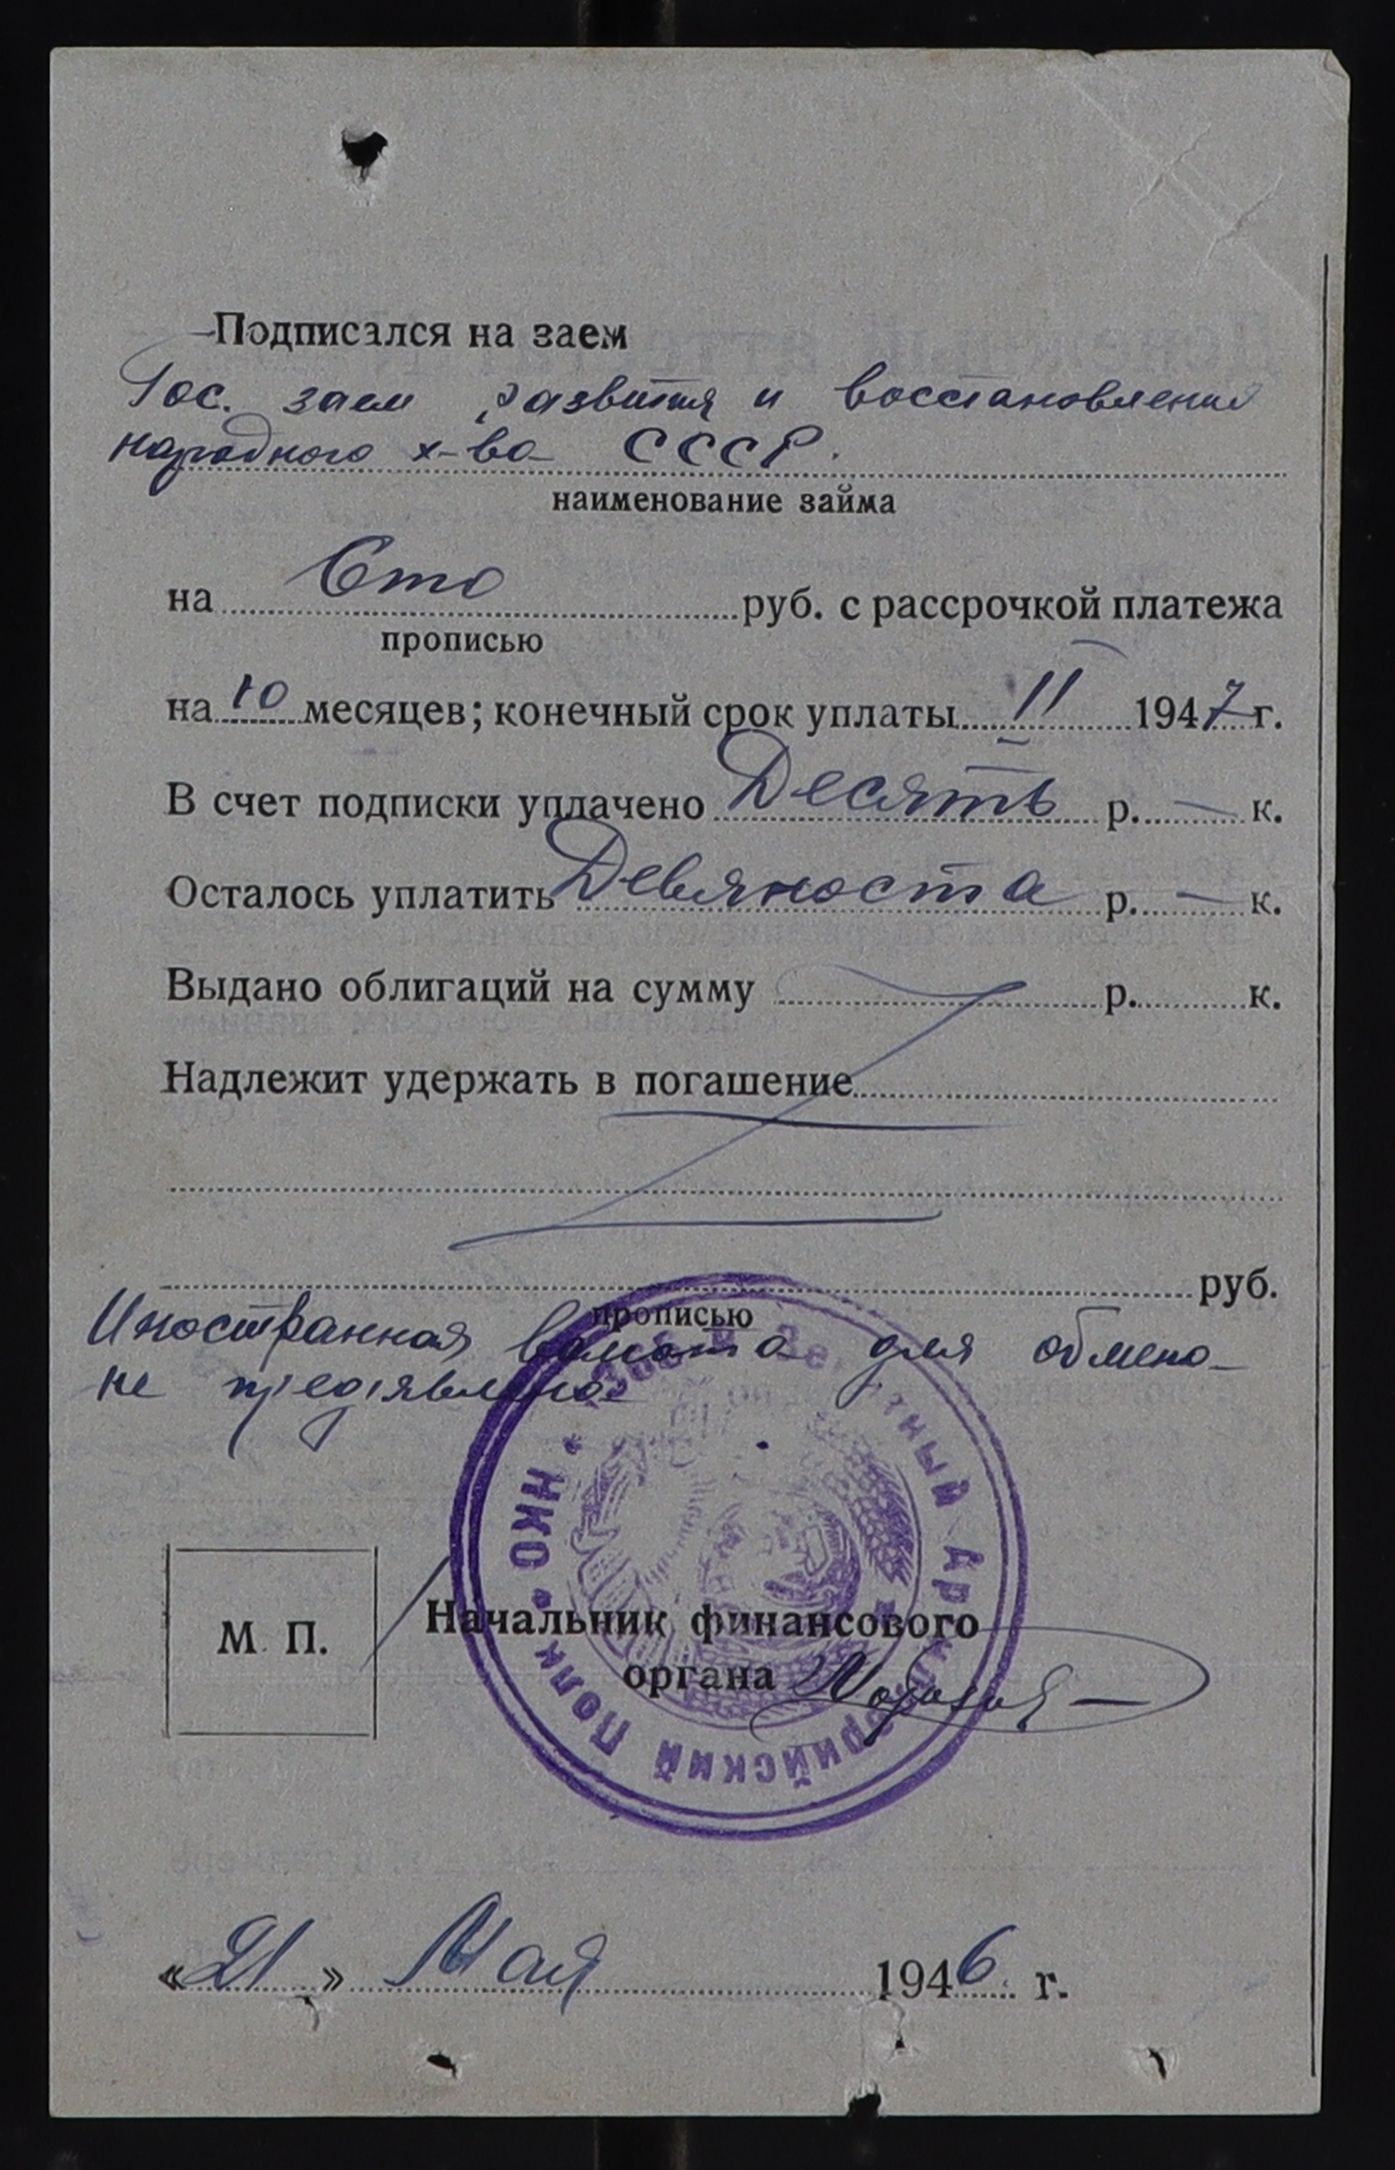 Подписался на заем
Гос. заем развития и восстановления
народного х-ва СССР.
наименование займа
на Сто руб. с рассрочкой платежа
прописью
на 10 месяцев; конечный срок уплаты II 1947 г.
В счет подписки уплачено Десять р. — к.
Осталось уплатить Девяноста р. — к.
Выдано облигаций на сумму р. к.
Надлежит удержать в погашение
руб.
прописью
Иностранная валюта для обмена
не предъявлена.
НКО * Зенитный Артиллерийский Полк *
М. П.
Начальник финансового
органа
«21» Мая 1946 г.